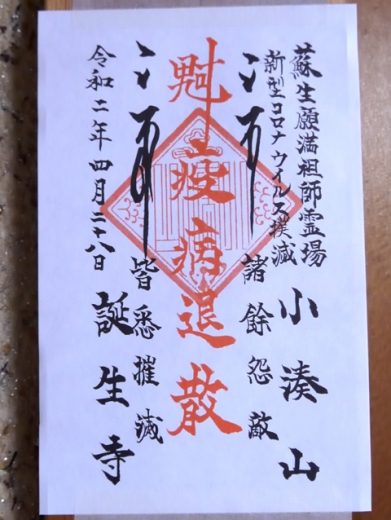 蘇生願満祖師霊場
新型コロナウイルス撲滅
小湊山
諸餘怨敵
魁
疫病退散
皆悉摧滅
令和二年四月二十八日
誕生寺